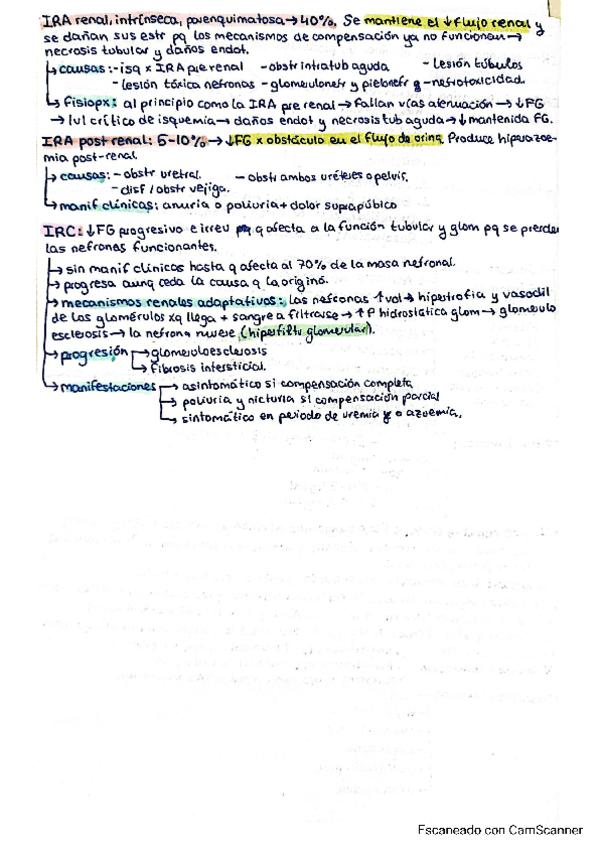 IRA renal, intrínseca, parenquimatosa → 40%. Se mantiene el ↓ flujo renal y
se dañan sus estr pq los mecanismos de compensación ya no funcionan →
necrosis tubular y daños endot.
↳ causas: - isq x IRA pre renal - obstr intratub aguda - lesión túbulos
- lesión tóxica nefronas - glomerulonefr y pielonefr g - nefrotoxicidad.
↳ fisiopx: al principio como la IRA pre renal → fallan vías atenuación → ↓FG
→ lvl crítico de isquemia → daños endot y necrosis tub aguda → ↓ mantenida FG.
IRA post renal: 5-10% → ↓FG x obstáculo en el flujo de orina. Produce hiperazoe-
mia post-renal.
↳ causas: - obstr uretral. - obstr ambos uréteres o pelvis.
- disf / obstr vejiga.
↳ manif clínicas: anuria o poliuria + dolor suprapúbico
IRC: ↓FG progresivo e irreu q afecta a la función tubular y glom pq se pierden
las nefronas funcionantes.
↳ sin manif clínicas hasta q afecta al 70% de la masa nefronal.
↳ progresa aunq ceda la causa q la originó.
↳ mecanismos renales adaptativos: las nefronas ↑vol → hipertrofia y vasodil
de los glomérulos xq llega + sangre a filtrarse → ↑P hidrostática glom → glomerulo
esclerosis → la nefrona muere (hiperfiltr glomerular).
↳ progresión → glomeruloesclerosis
↳ fibrosis intersticial.
↳ manifestaciones → asintomático si compensación completa
↳ poliuria y nicturia si compensación parcial
↳ sintomático en periodo de uremia y o azoemia.
Escaneado con CamScanner